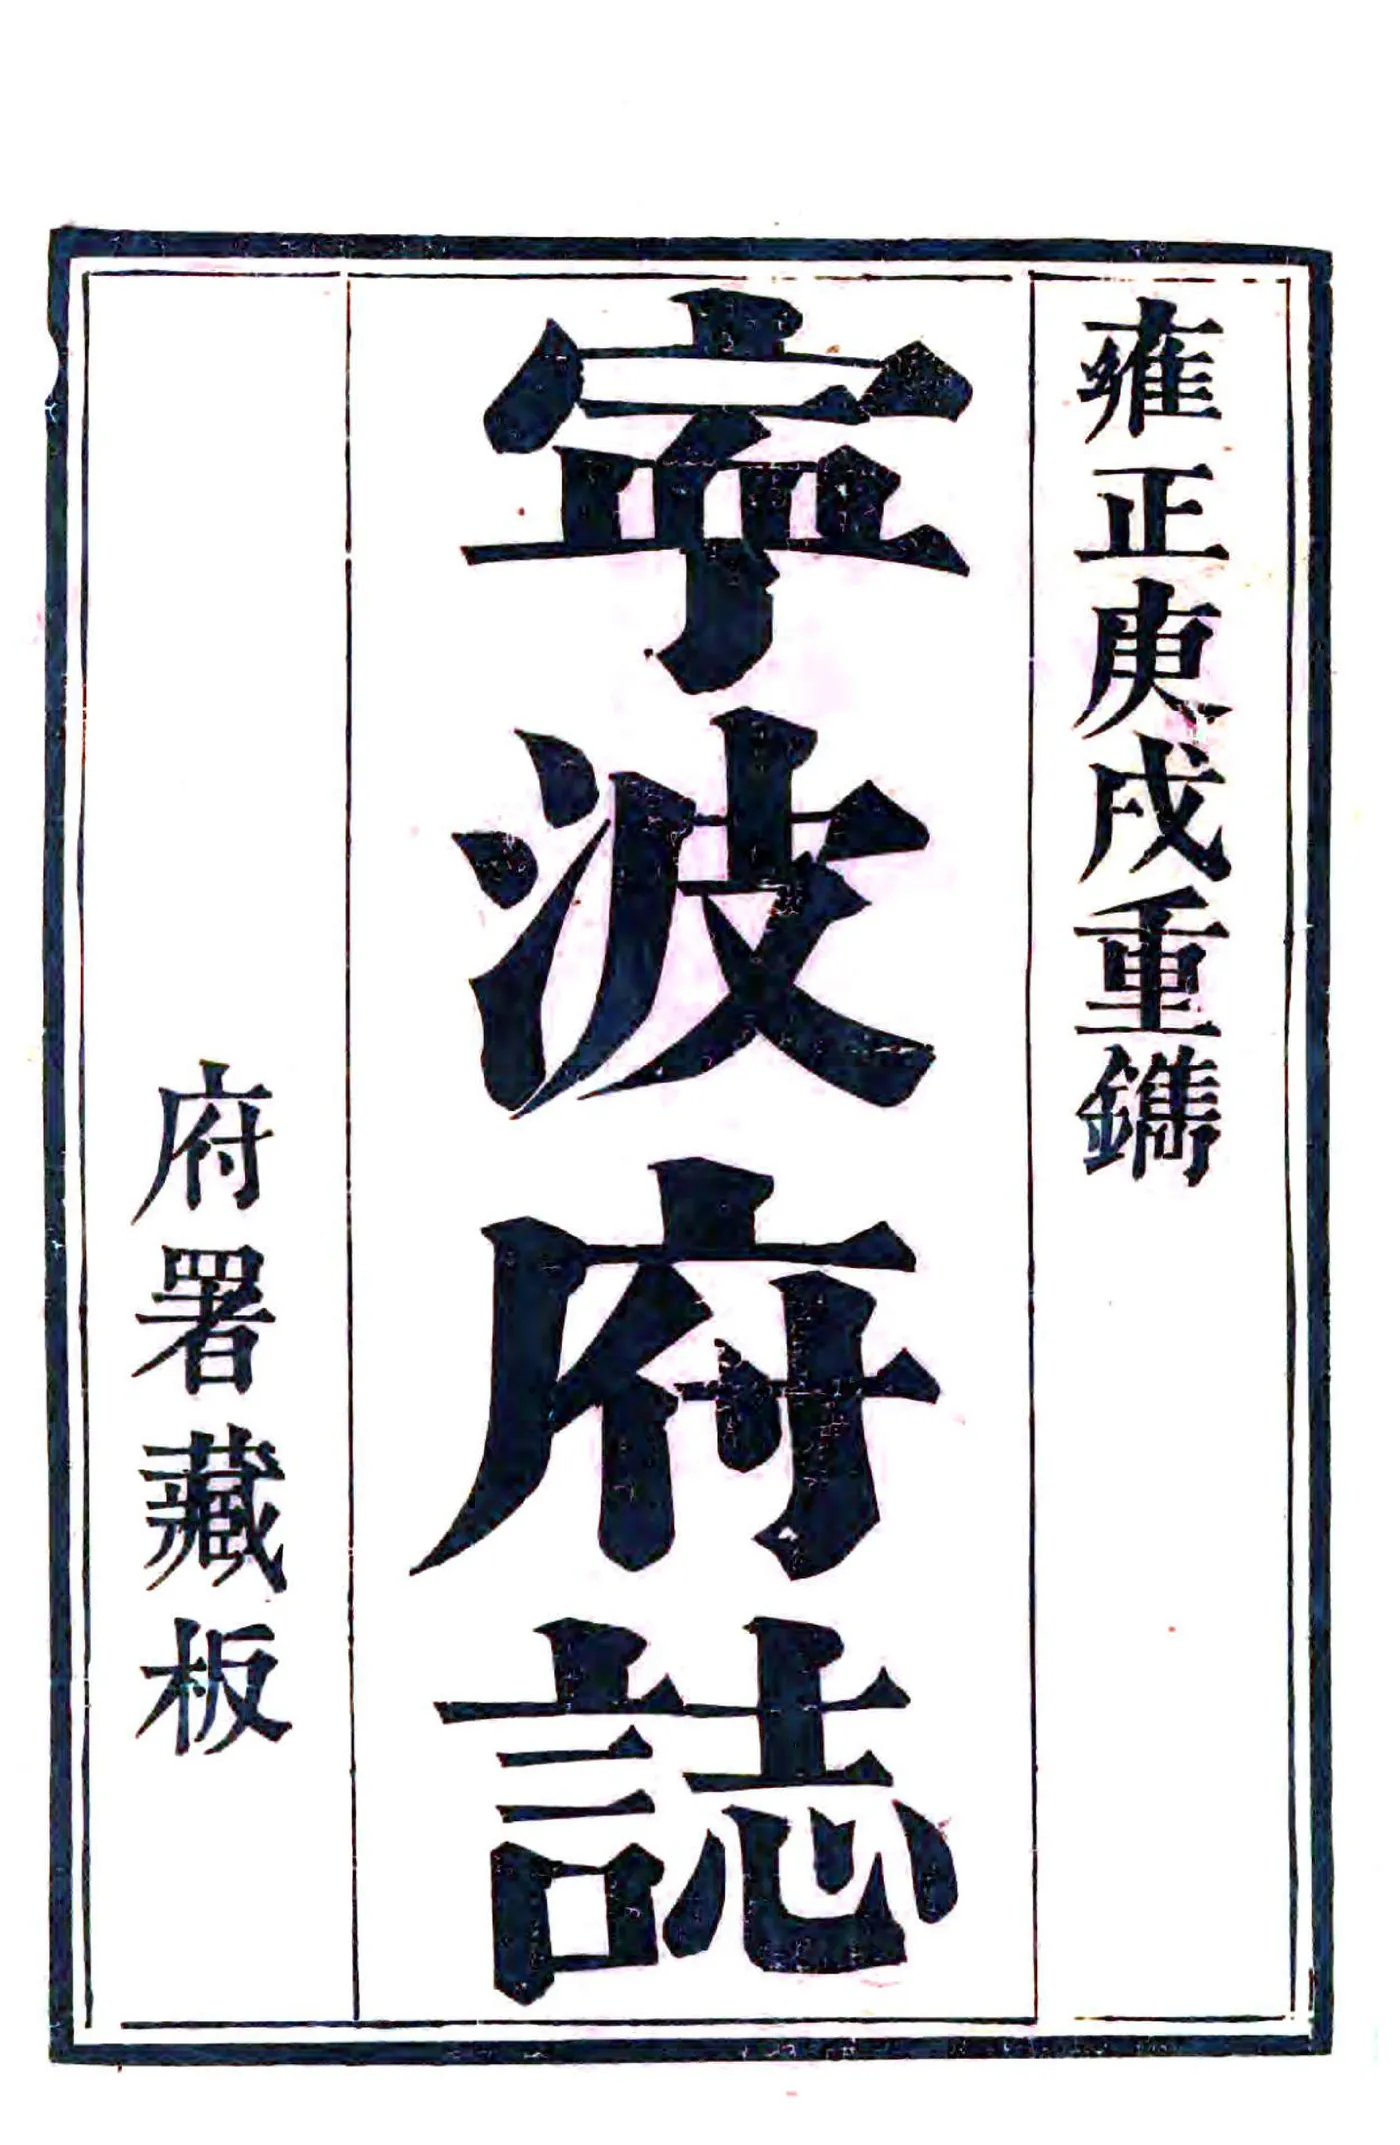 雍正庚戌重鐫
寧波府誌
府署藏板